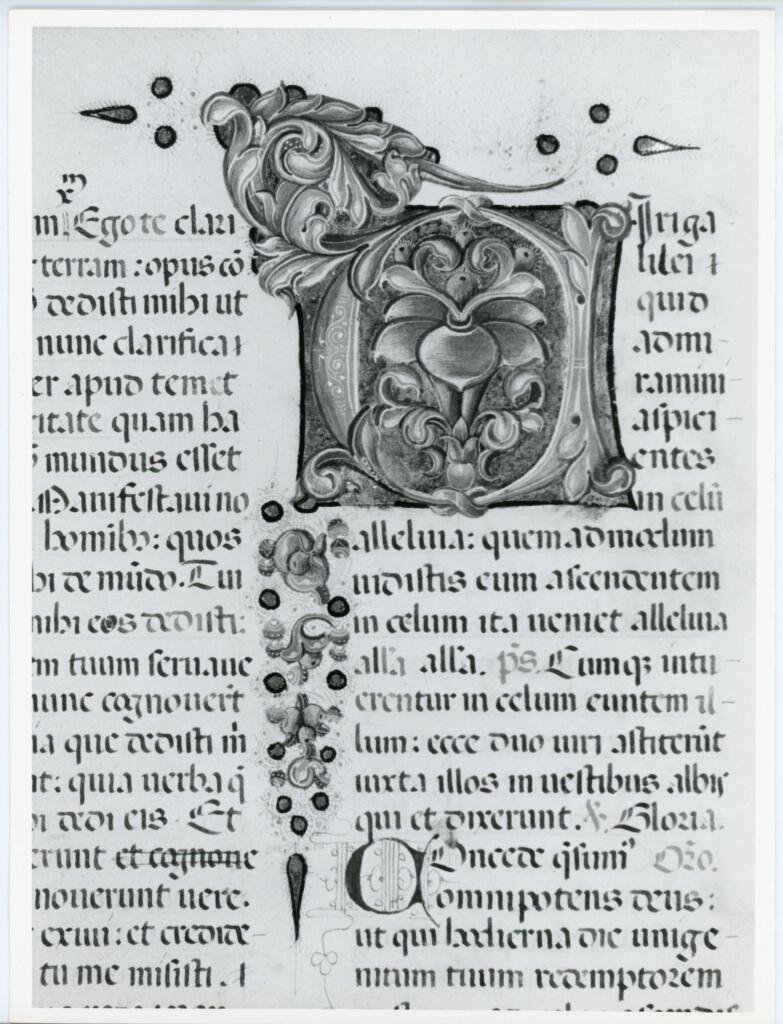 m Ego te clari
terram : opus cō
dedisti mihi ut
nunc clarifica
er apud temet
ritate quam ha
mundus esset
Manifestaui no
homib: quos
bi de mūdo. Tui
mihi eos dedisti:
em tuum seruaue
nunc cognouert̄
ia que dedisti m̄
t: quia uerba q̄
dedi eis. Et
erunt et cognoue
nouerunt uere.
exiui: et credide-
tu me misisti.
Uiriga
lilei
quid
admi-
ramini
aspici-
entes
in celū
alleluia: quemadmodum
uidistis eum ascendentem
in celum ita ueniet alleluia
alla alla. ps. Cumq; intu-
erentur in celum euntem il-
lum: ecce duo uiri astiterūt
iuxta illos in uestibus albis
qui et dixerunt. V. Gloria.
Concede q̄sum' Oro.
omnipotens deus:
ut qui hodierna die unige-
nitum tuum redemptorem